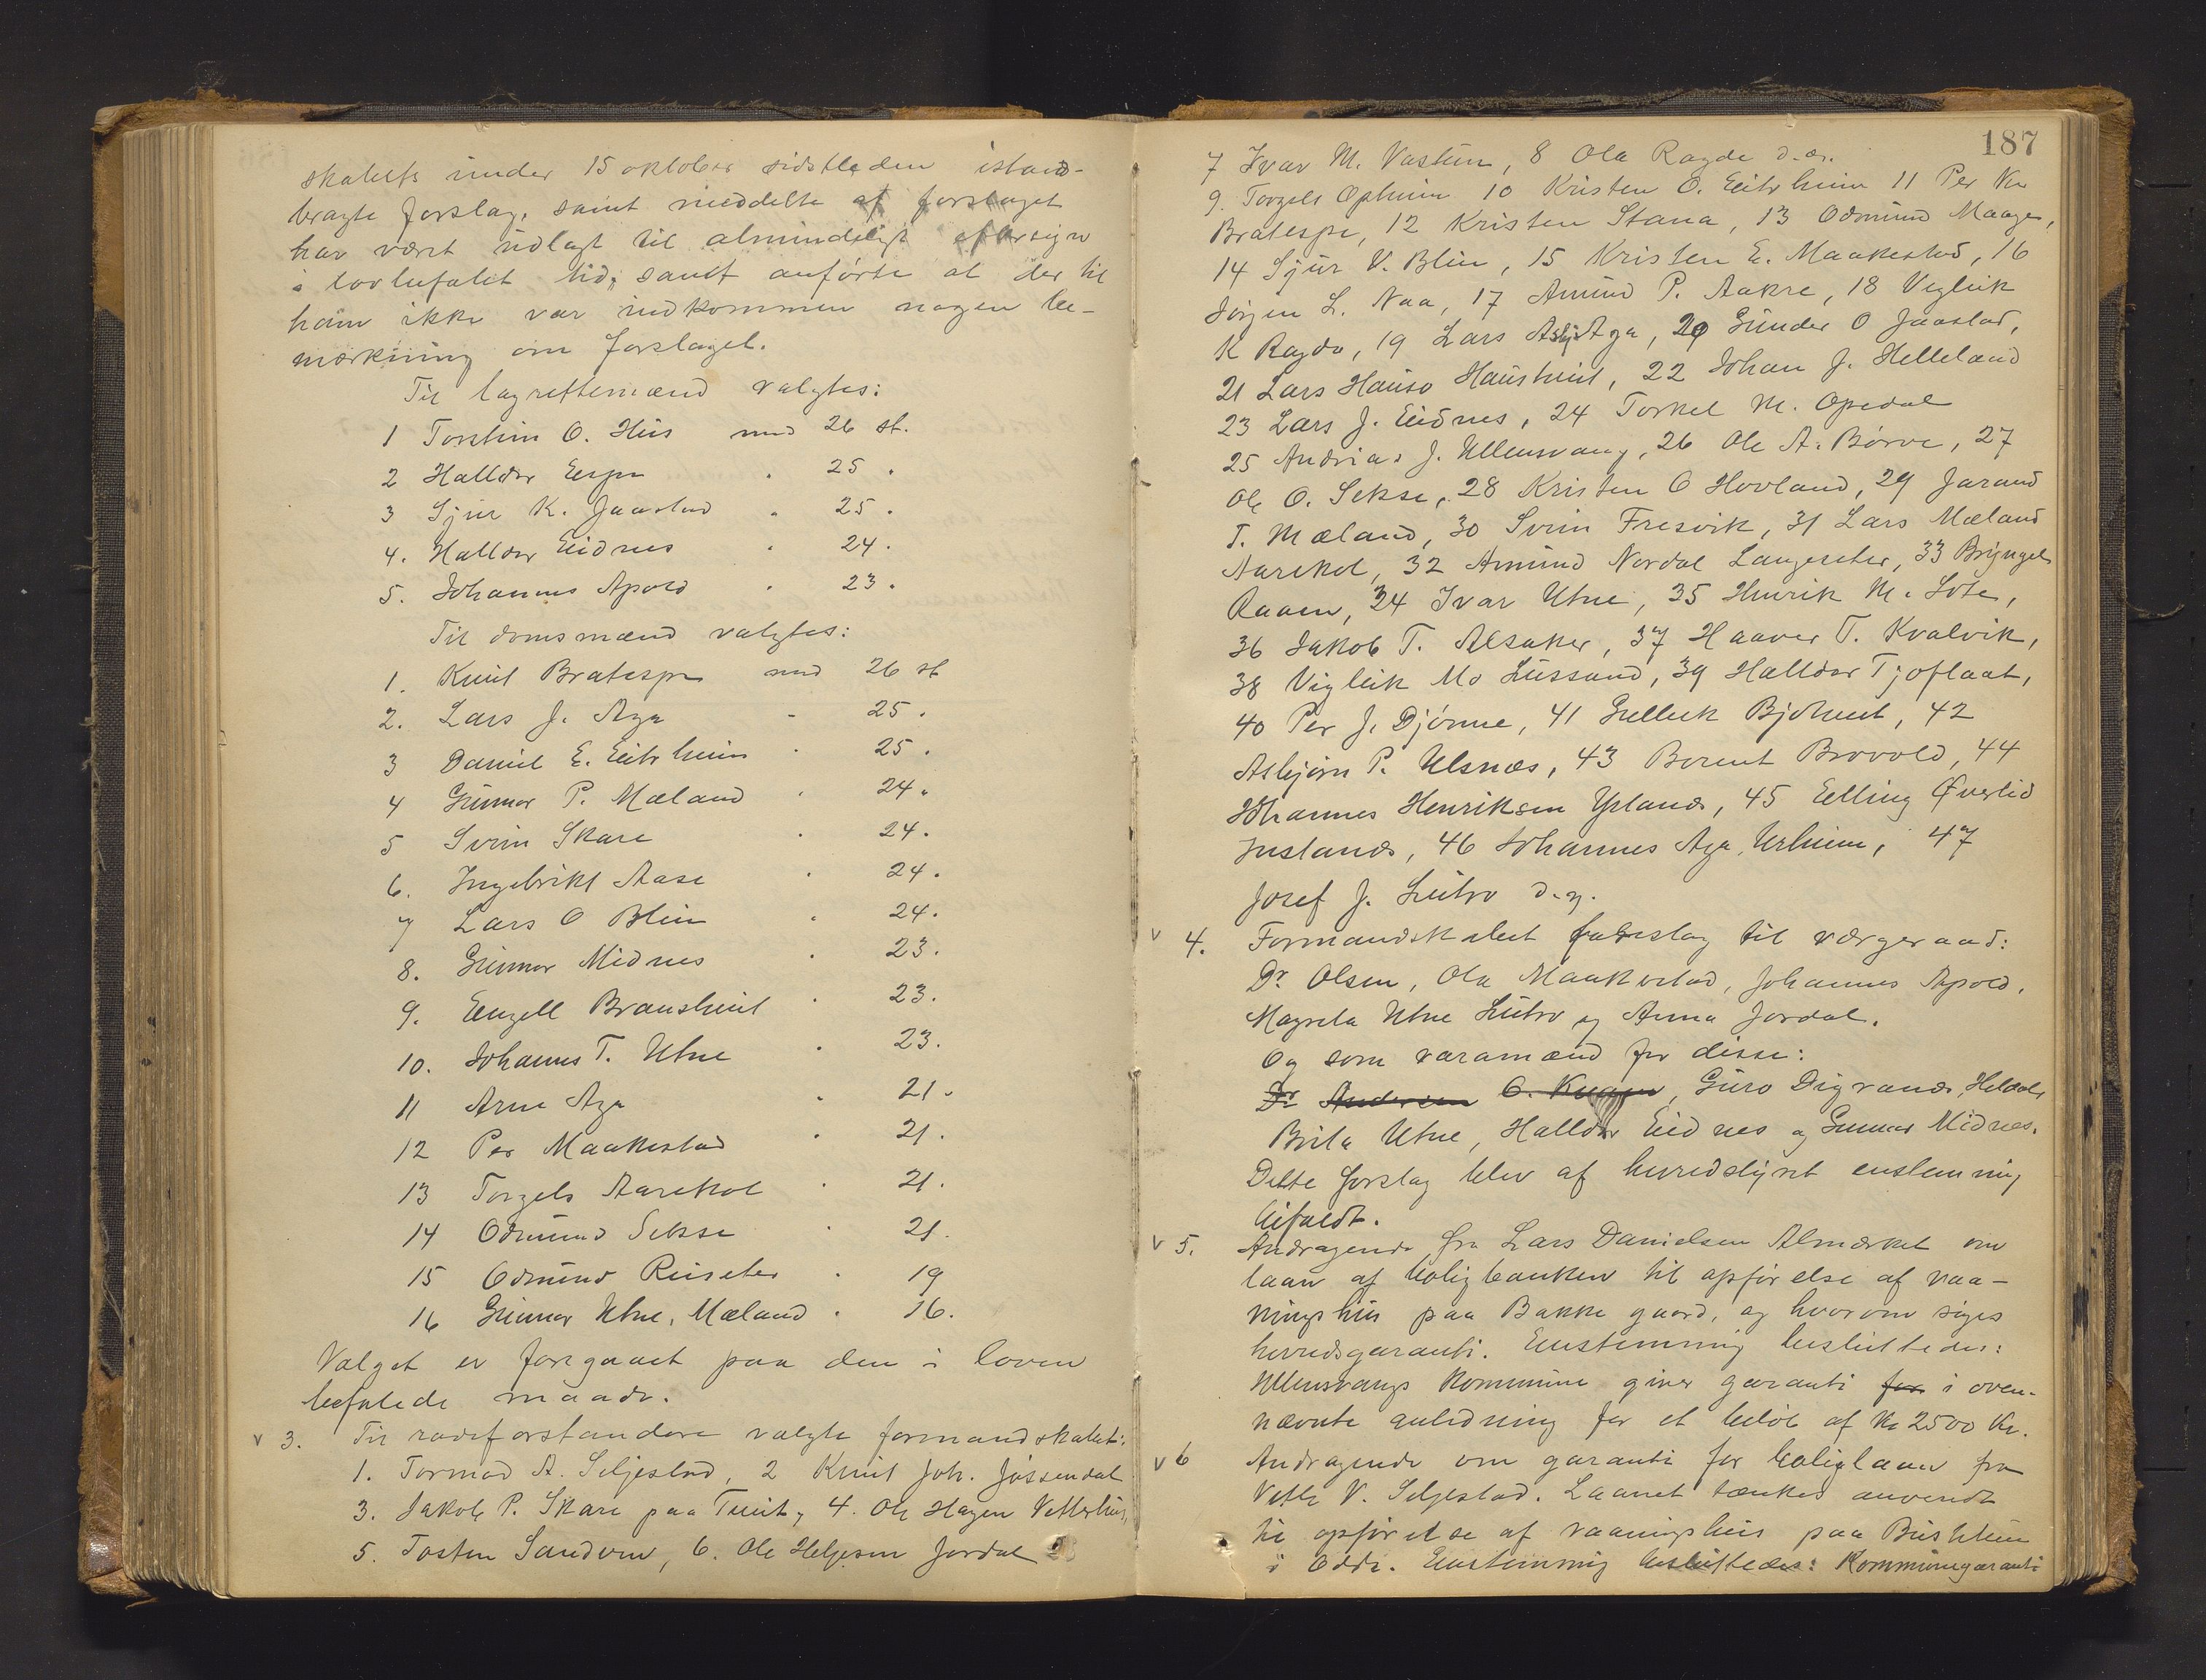 skabets under 15 oktober sidstleden istand-
bragte forslag, samt meddelte at forslaget
har været udlagt til almindeligt eftersign
i lovbefalet tid, samt anførte at der til
ham ikke var indkommen nogen be-
mærkning om forslaget.
Til lagrettemænd valgtes:
1 Torstein O. Hus med 26 st.
2 Halldor Espe " 25 "
3 Sjur K. Jaastad " 25 "
4. Halldor Eidnes " 24 "
5. Johannes Apold " 23 "
Til domsmænd valgtes:
1. Knut Bratespe med 26 st
2. Lars J. Aga " 25 "
3 Daniel E. Eitrheim " 25 "
4 Gunnar P. Mæland " 24 "
5 Svein Skare " 24 "
6. Ingebrikt Aase " 24 "
7 Lars O Bleie " 24 "
8. Gunnar Midnes " 23 "
9. Engell Braustveit " 23 "
10. Johannes T. Utne " 23 "
11 Arne Aga " 21 "
12 Per Maakestad " 21 "
13 Torgels Aarekol " 21 "
14 Odmund Sekse " 21 "
15 Odmund Reiseter " 19
16 Gunnar Utne, Mæland " 16.
Valget er foregaaet paa den i loven
befalede maade.
v 3. Til rodeforstandere valgte formandskabet:
1. Tormod A. Seljestad, 2 Knut Joh. Jøssendal
3. Jakob P. Skare paa Tveit, 4. Ole Hagen Vetterhus,
5. Tosten Sandven, 6. Ole Helgesen Jordal
187
7 Ivar M. Vasstun, 8 Ola Ragde d.æ.
9. Torgels Opheim 10 Kristen O. Eitrheim 11 Per Kn
Bratespe, 12 Kristen Stana, 13 Odmund Maage,
14 Sjur V. Bleie, 15 Kristen E. Maakestad, 16
Jørgen L. Naa, 17 Amund P. Aakre, 18 Vigleik
K Ragde, 19 Lars Asbj Aga, 20 Gunder O Jaastad,
21 Lars Hauso Haustveit, 22 Johan J. Helleland
23 Lars J. Eidnes, 24 Torkel M. Opedal
25 Andrias J. Ullensvang, 26 Ole A. Børve, 27
Ole O. Sekse, 28 Kristen O Hovland, 29 Jarand
T. Mæland, 30 Svein Fresvik, 31 Lars Mæland
Aarekol, 32 Amund Nordal Langeseter, 33 Bryngel
Raaen, 34 Ivar Utne, 35 Henrik M. Lote,
36 Jakob T. Alsaker, 37 Haaver T. Kvalvik,
38 Vigleik Mo Lussand, 39 Halldor Tjoflaat,
40 Per J. Djønne, 41 Gulleik Bjotveit, 42
Asbjørn P. Ulsnæs, 43 Berent Brovold, 44
Johannes Henriksen Yrland, 45 Elling Øverlid
Instanes, 46 Johannes Aga, Urheim, 47
Josef J. Lutro d.y.
v 4. Formandskabet foreslog til værgeraad:
Dr. Olsen, Ola Maakestad, Johannes Apold,
Magrela Utne Lutro og Anna Jordal.
Og som varamænd for disse:
Dr Andersen O. Kvagen, Guro Digranes, Heldal,
Brita Utne, Halldor Eidnes og Gunnar Midnes.
Dette forslag blev af herredstyret enstemmig
bifaldt.
v 5. Andragende fra Lars Danielsen Almerket om
laan af boligbanken til opførelse af vaa-
ningshus paa Bakke gaard, og hvorom søges
herredsgaranti. Enstemmig besluttedes:
Ullensvangs kommune giver garanti for i oven-
nævnte anledning for et beløb af kr 2500 kr.
v 6 Andragende om garanti for boliglaan fra
Vetle V. Seljestad. Laanet tænkes anvendt
til opførelse af vaaningshus paa Bustetun
i Odda. Enstemmig besluttedes: Kommunegaranti